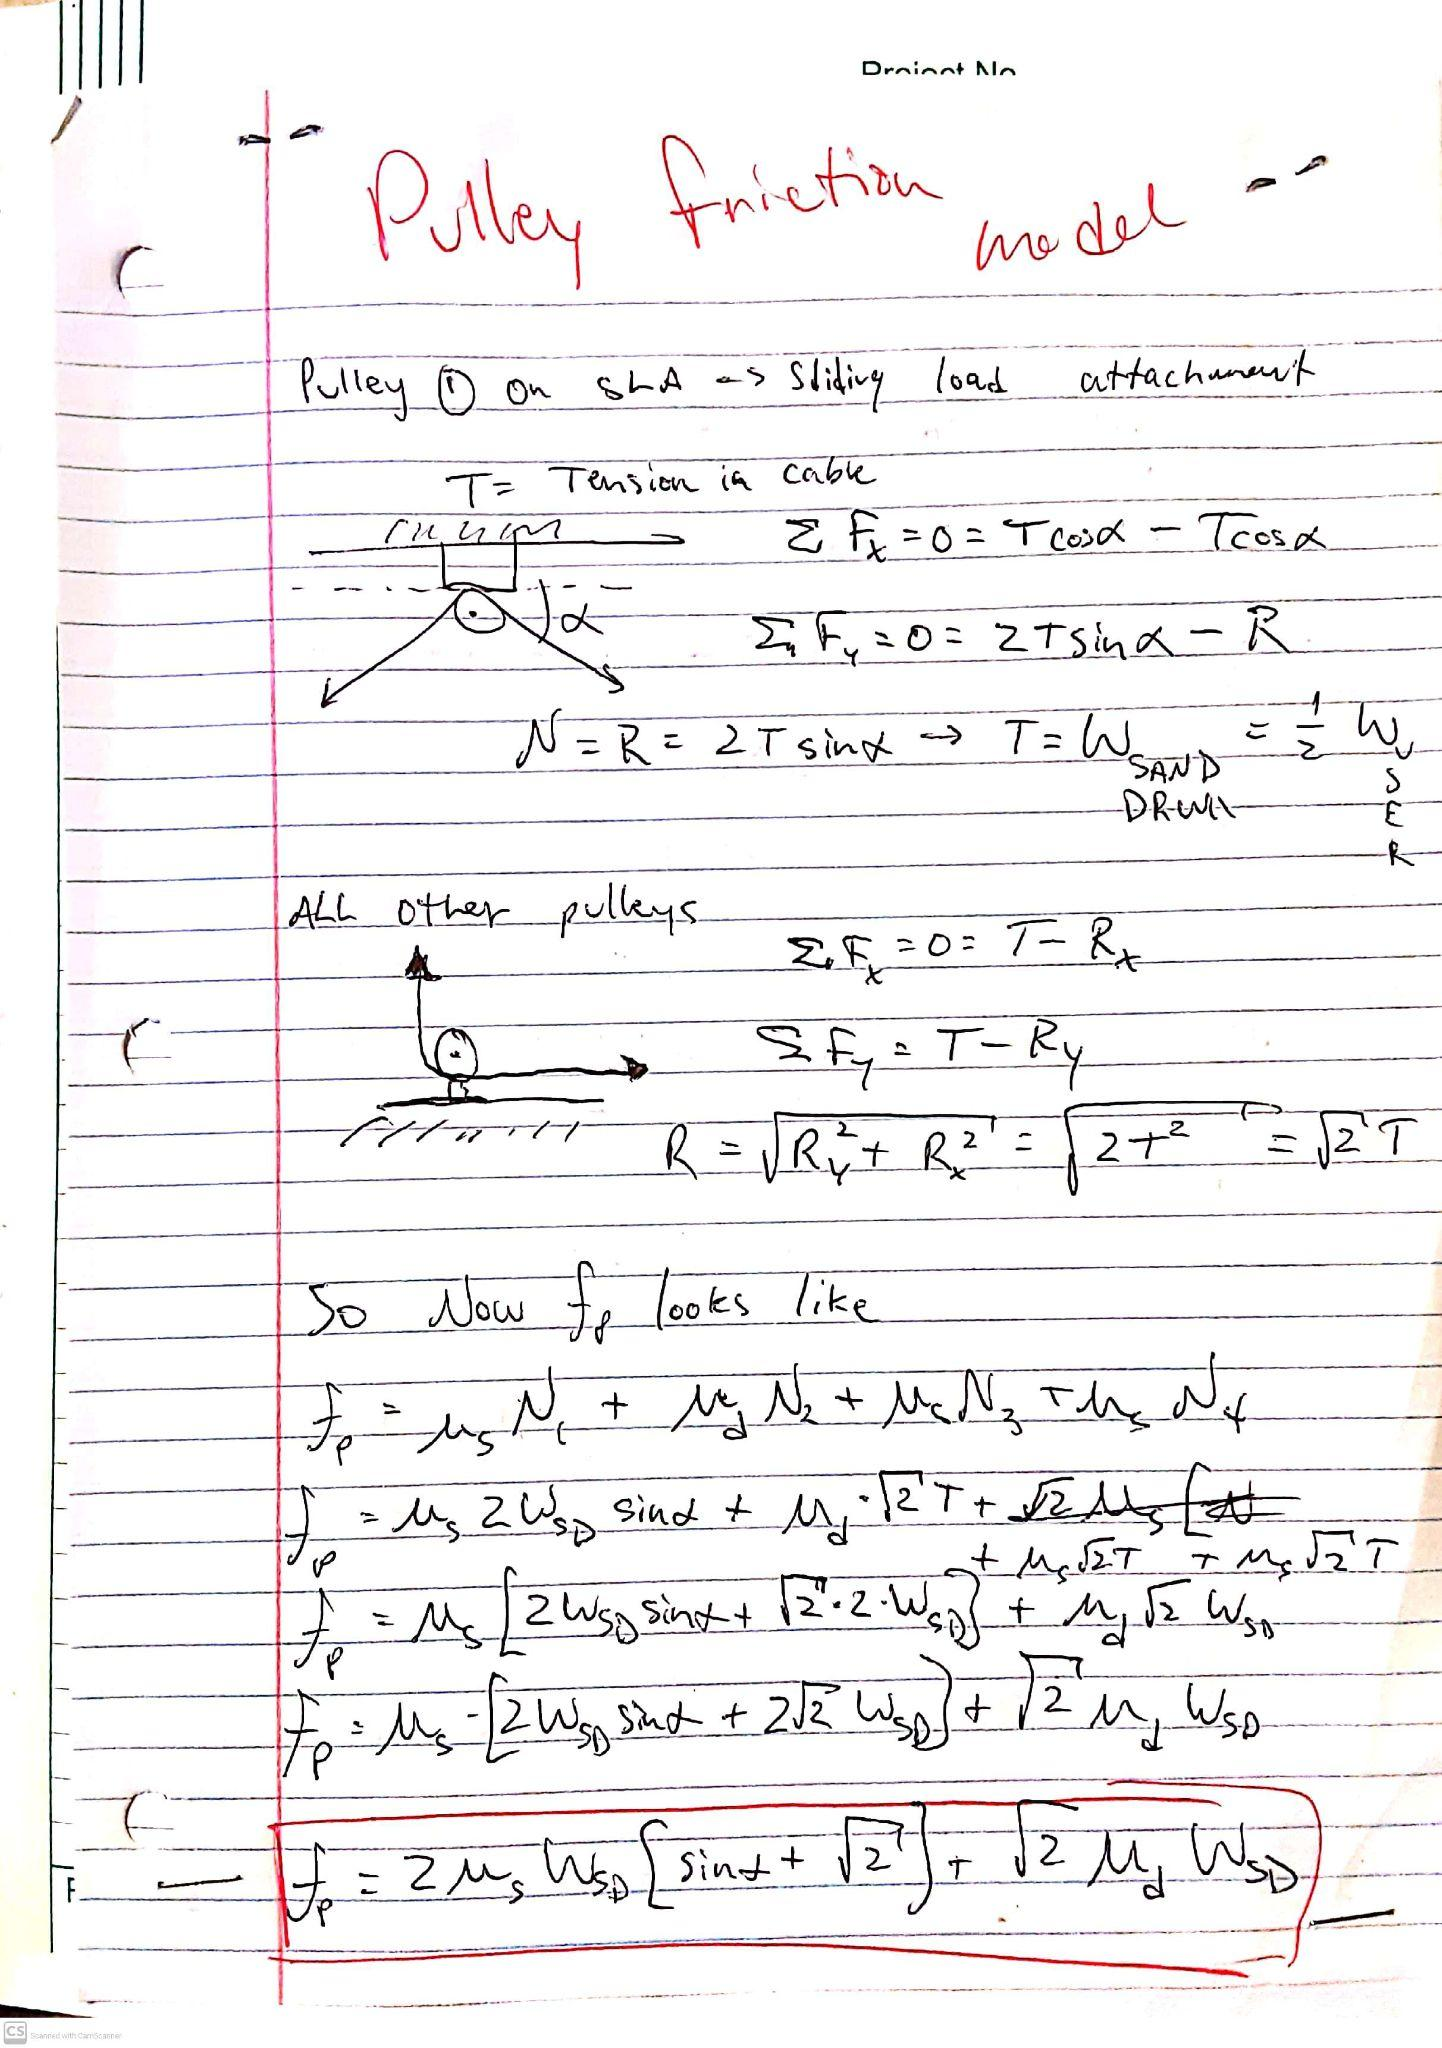 Project No
Pulley friction model
Pulley ① on SLA → Sliding load attachment
T = Tension in cable
Σ Fx = 0 = T cosα − T cosα
α
Σ Fy = 0 = 2T sinα − R
N = R = 2T sinα → T = W SAND DRUM = 1/2 W USER
ALL other pulleys
Σ Fx = 0 = T − Rx
Σ Fy = T − Ry
R = √(Ry² + Rx²) = √(2T²) = √2 T
So Now fp looks like
fp = μs N1 + μd N2 + μs N3 + μs N4
fp = μs 2WSD sinα + μd · √2 T + √2 μs [N
+ μs √2 T + μs √2 T
fp = μs [2WSD sinα + √2 · 2 · WSD] + μd √2 WSD
fp = μs · [2WSD sinα + 2√2 WSD] + √2 μd WSD
fp = 2 μs WSD [sinα + √2] + √2 μd WSD
F
CS Scanned with CamScanner